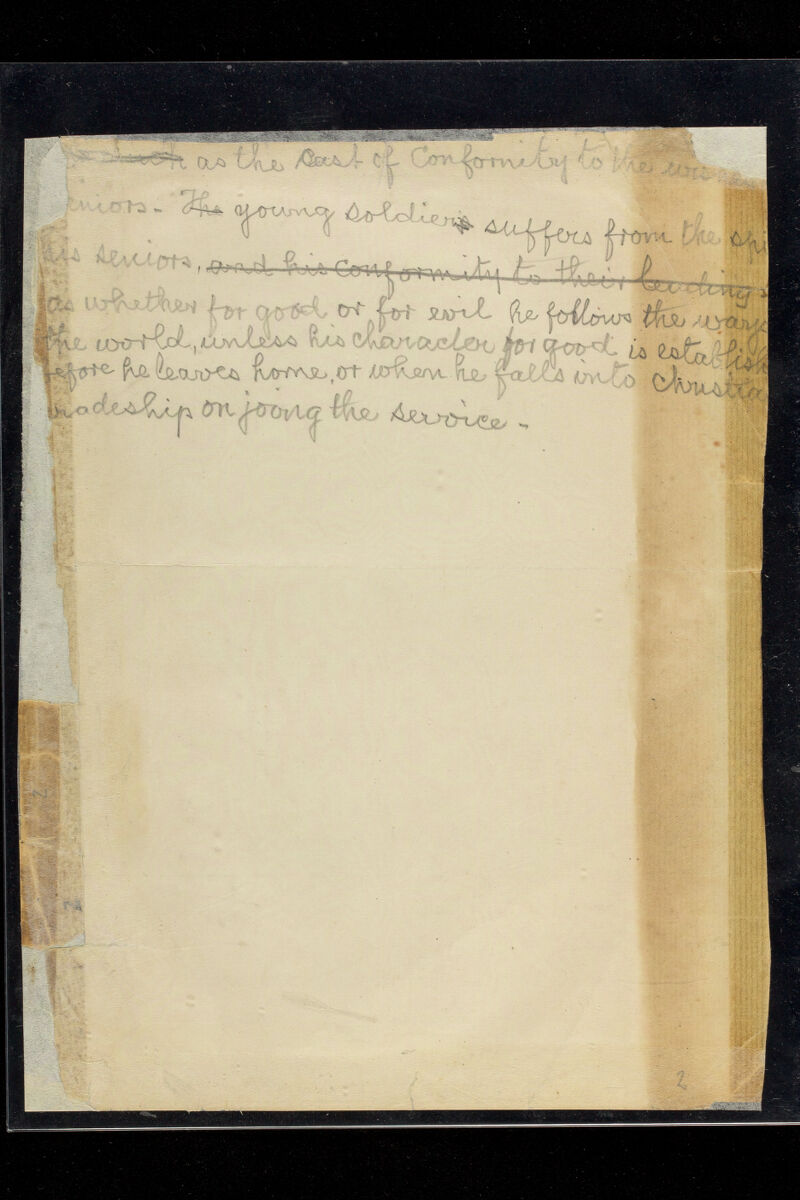 such as the cast of Conformity to the
eniors - The young soldiers suffers from the spi
his seniors, and his conformity to their leadings
as whether for good or for evil he follows the ways
the world, unless his character for good is establish
efore he leaves home, or when he falls into christia
radeship on joong the service -
2